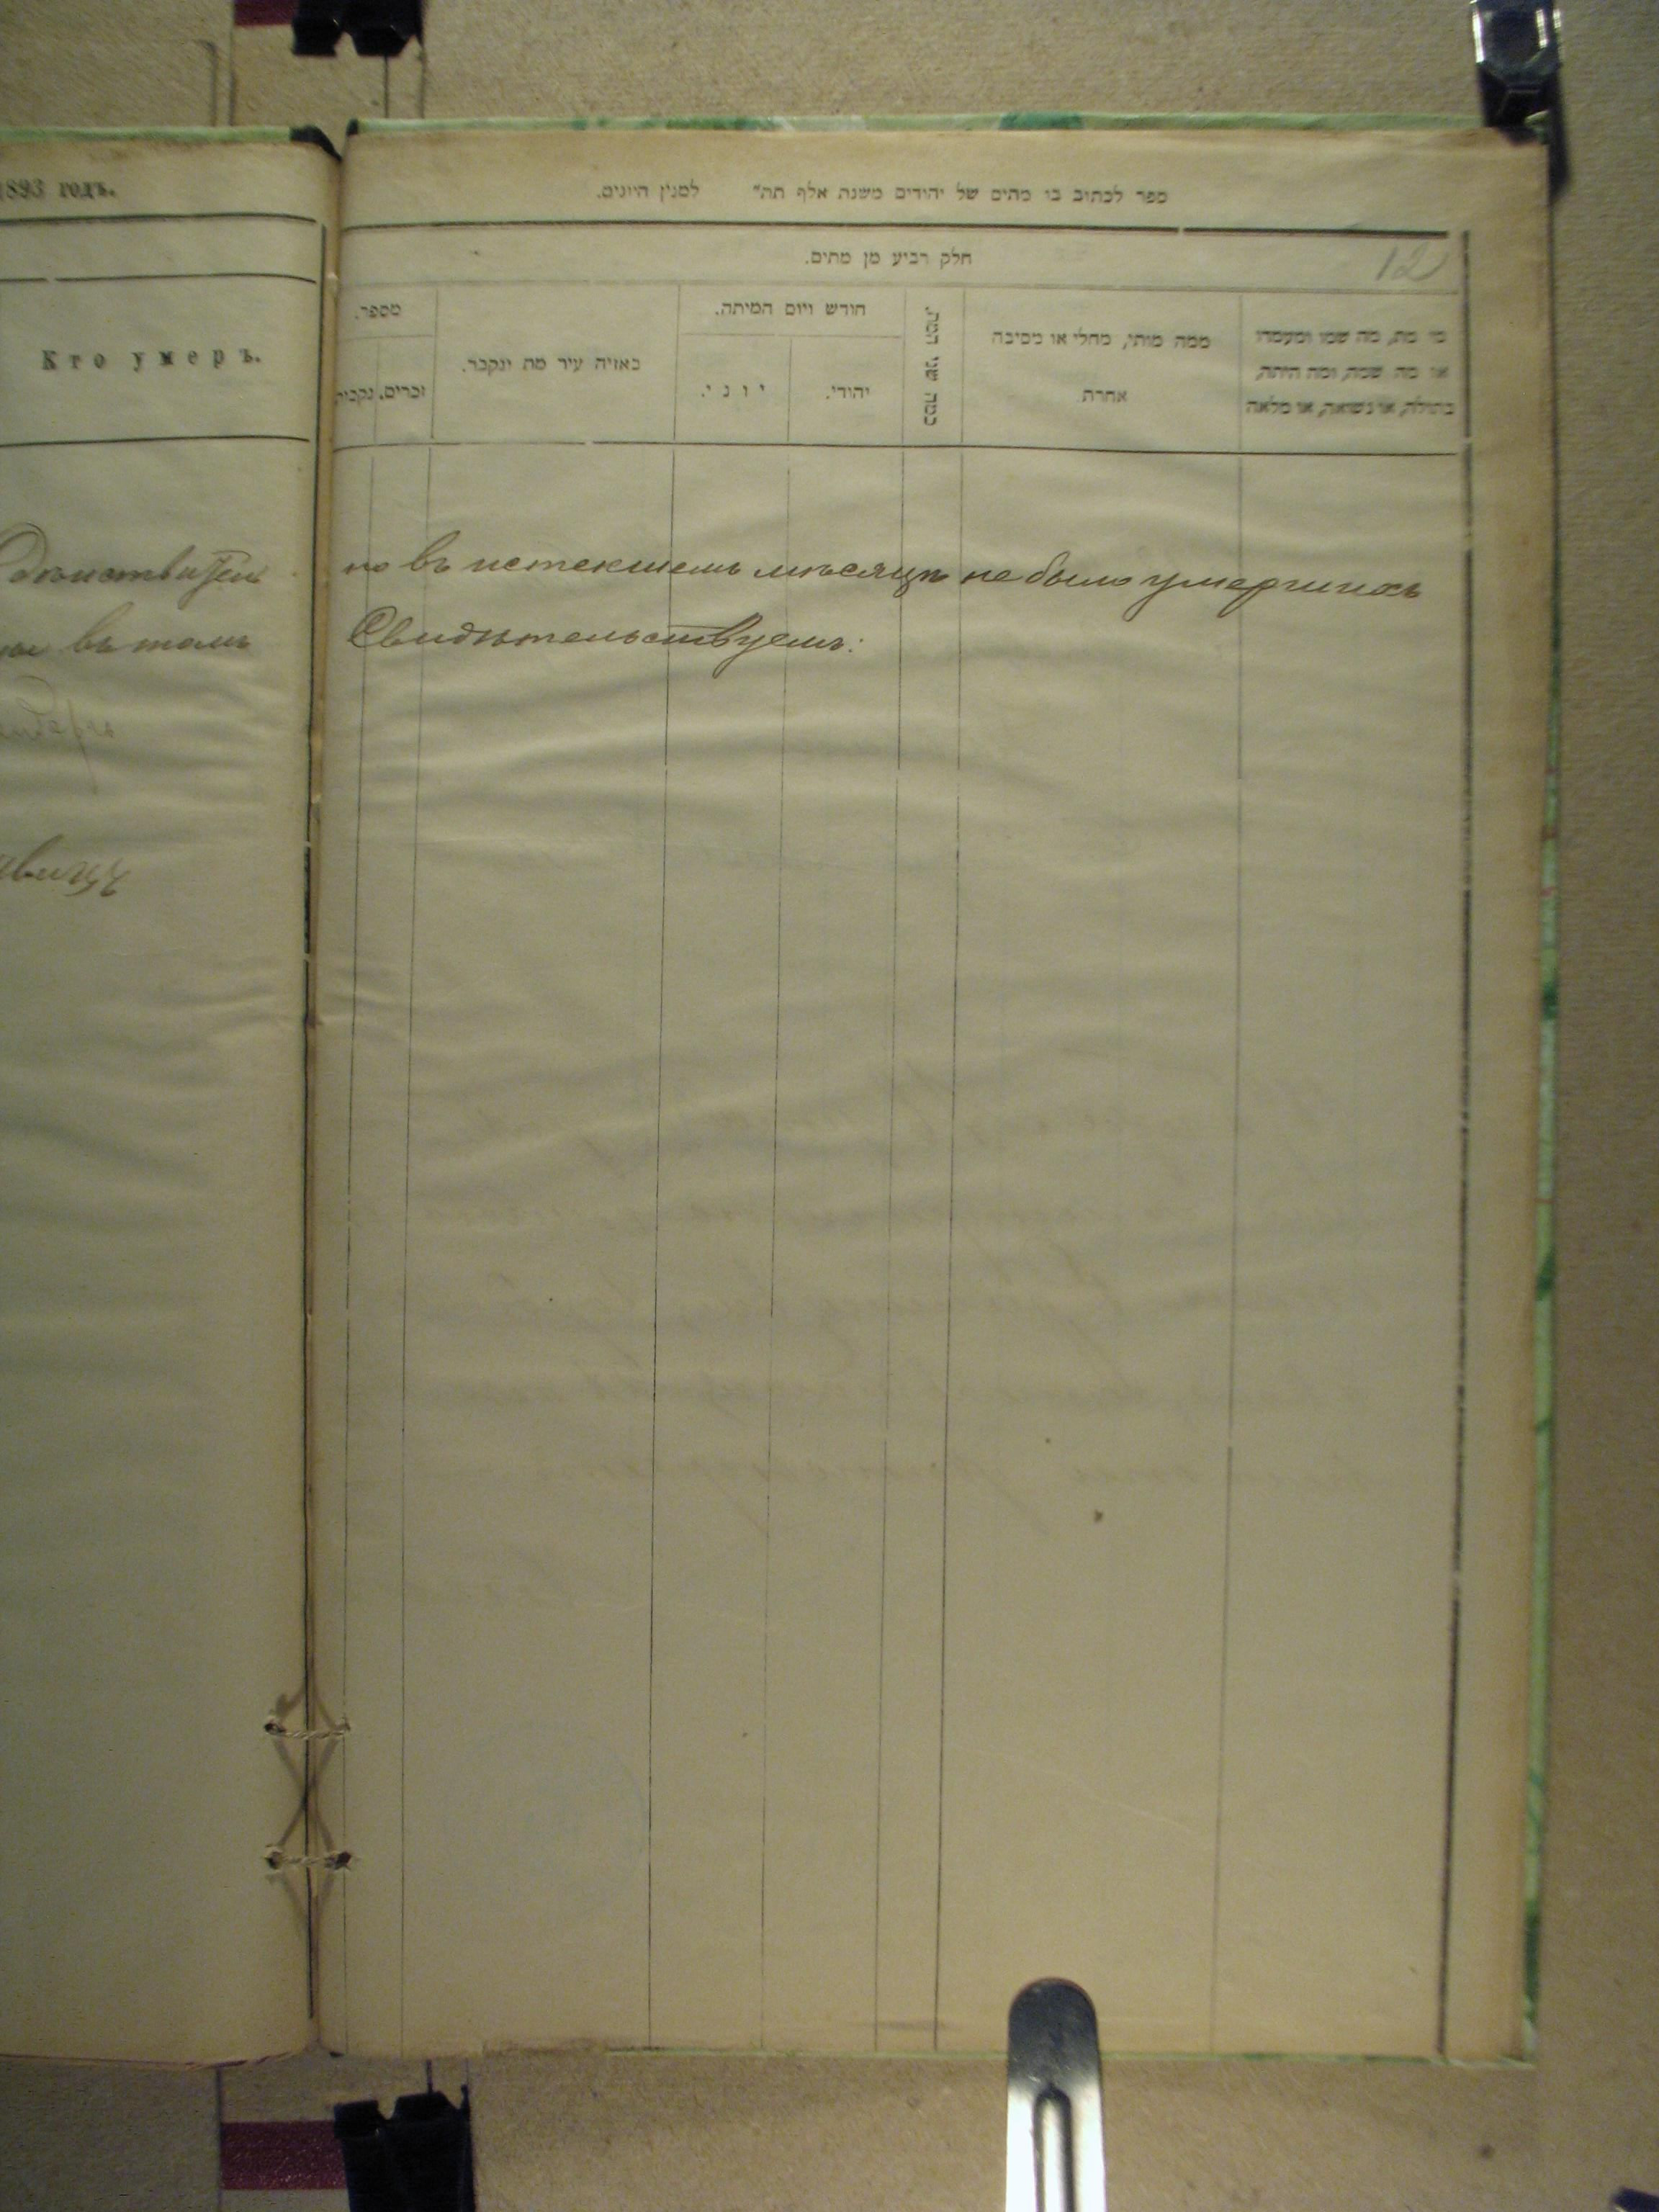 1893 годъ.
Кто умеръ.
ספר לכתוב בו מתים של יהודים משנת אלף תת״ למנין היונים.
12
חלק רביע מן מתים.
מספר.
זכרים.
נקבות
באיזה עיר מת ונקבר.
חודש ויום המיתה.
יוני.
יהודי.
כמה שני המת.
ממה מותו, מחלי או מסיבה
אחרת
מי מת, מה שמו ומעמדו
או מה שמה, ומה היתה,
בתולה, או נשואה, או
дѣиствител
но въ истекшемъ мѣсяцѣ не было умершихъ
въ томъ
Свидѣтельствуемъ: